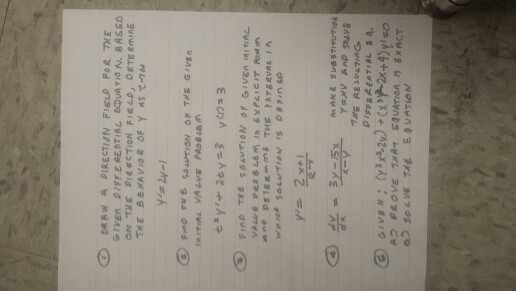 ① DRAW A DIRECTION FIELD FOR THE
GIVEN DIFFERENTIAL EQUATION. BASED
ON THE DIRECTION FIELD, DETERMINE
THE BEHAVIOR OF Y AS t→∞
y' = 2y-1
② FIND THE SOLUTION OF THE GIVEN
INITIAL VALUE PROBLEM
t²y' + 2ty = 3 y(1) = 3
③ FIND THE SOLUTION OF GIVEN INITIAL
VALUE PROBLEM IN EXPLICIT FORM
AND DETERMINE THE INTERVAL IN
WHICH SOLUTION IS DEFINED
y' = 2x+1
④ dy/dx = 3y-15x / x-y MAKE SUBSTITUTION
Y=XV AND SOLVE
THE RESULTING
DIFFERENTIAL EQ.
⑤ GIVEN:
a) PROVE THAT EQUATION IS EXACT
b) SOLVE THE EQUATION